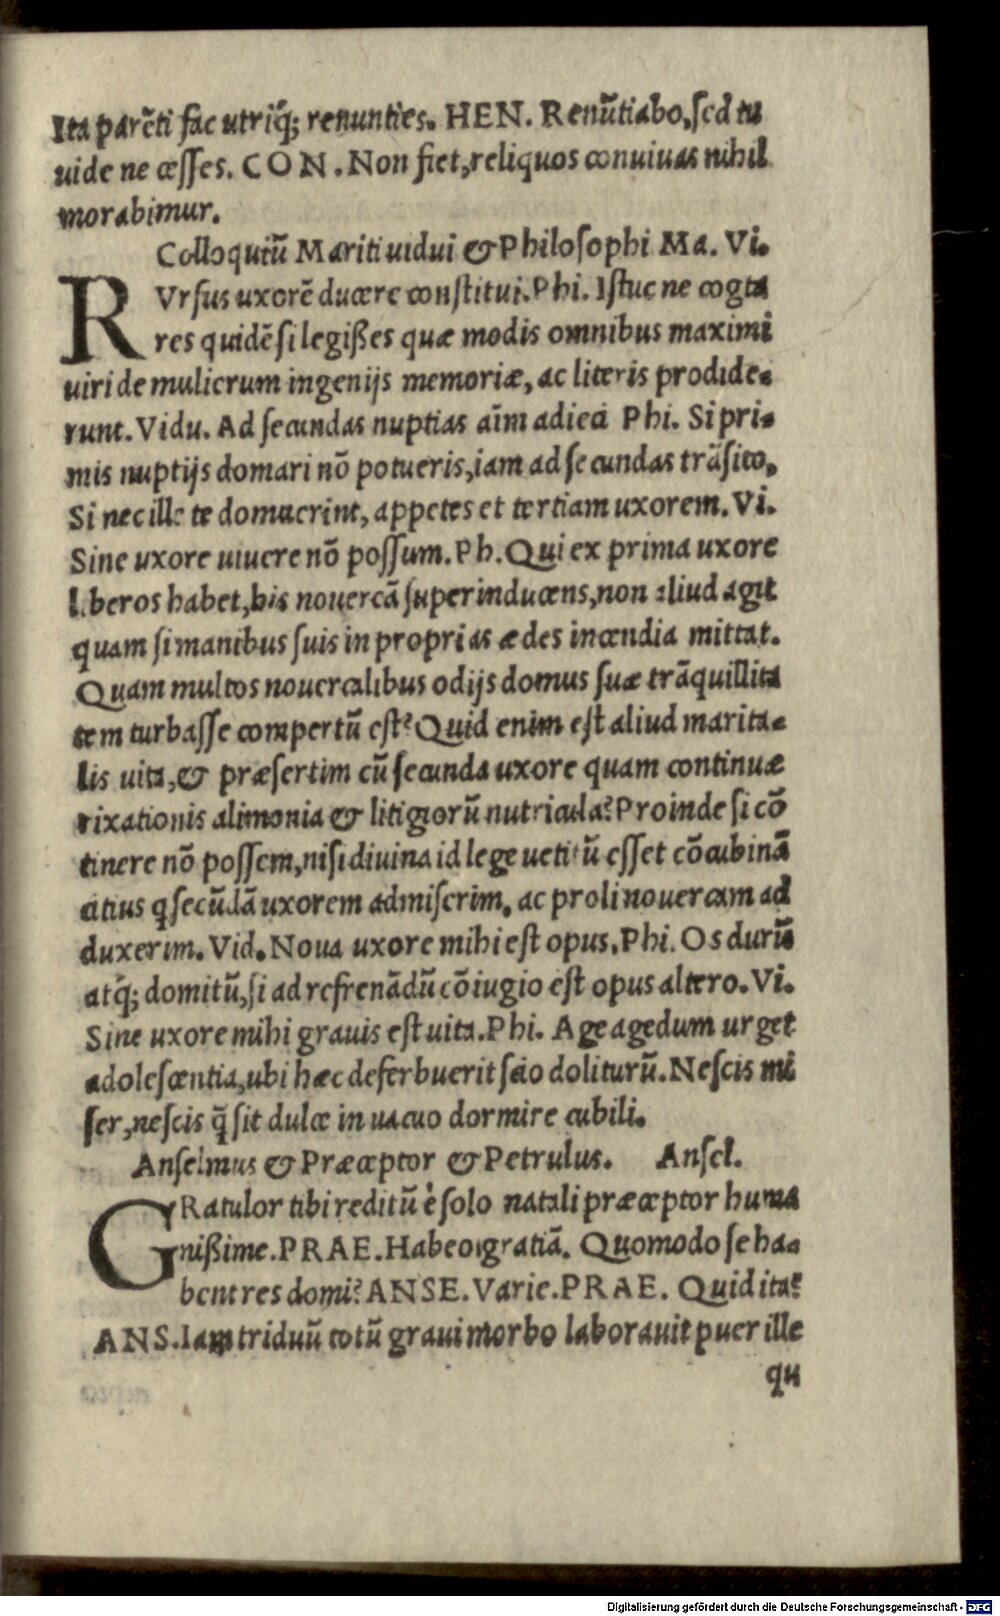 Ita parēti fac utriq́ꝫ renunties. HEN. Renūtiabo, sed tu
uide ne cesses. CON. Non fiet, reliquos conuiuas nihil
morabimur.
Colloquiū Mariti uidui & Philosophi Ma. Vi.
RVrsus uxorē ducere constitui. Phi. Istuc ne cogta
res quidē si legißes quæ modis omnibus maximi
uiri de mulierum ingenijs memoriæ, ac literis prodide-
runt. Vidu. Ad secundas nuptias aĩm adieci Phi. Si pri-
mis nuptijs domari nō potueris, iam ad secundas trāsito,
Si nec ille te domuerint, appetes et tertiam uxorem. Vi.
Sine uxore uiuere nō possum. Ph. Qui ex prima uxore
liberos habet, his nouercā superinducens, non aliud agit
quam si manibus suis in proprias ædes incendia mittat.
Quam multos nouercalibus odijs domus suæ trāquillita
tem turbasse compertū est? Quid enim est aliud marita-
lis uita, & præsertim cū secunda uxore quam continuæ
rixationis alimonia & litigiorū nutricula? Proinde si cō
tinere nō possem, nisi diuina id lege uetitū esset cōcubinā
citius q̄ secūdā uxorem admiserim, ac proli nouercam ad
duxerim. Vid. Noua uxore mihi est opus, Phi. Os durū
atq́ꝫ domitū, si ad refrenādū cōiugio est opus altero. Vi.
Sine uxore mihi grauis est uita. Phi. Age agedum urget
adolescentia, ubi hæc deferbuerit scio doliturū. Nescis mi
ser, nescis q̄ sit dulce in uacuo dormire cubili.
Anselmus & Præceptor & Petrulus. Ansel.
GRatulor tibi reditū è solo natali præceptor huma
nißime. PRAE. Habeo gratiā. Quomodo se ha-
bent res domi? ANSE. Varie. PRAE. Quid ita?
ANS. Iam triduū totū graui morbo laborauit puer ille
qu
Digitalisierung gefördert durch die Deutsche Forschungsgemeinschaft - DFG